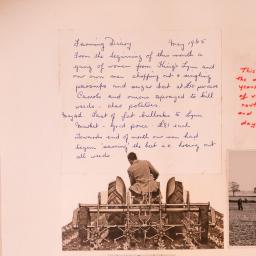 Farming Diary May 1965
From the beginning of this month a
gang of women from King's Lynn and
our own men chopping out & singling
parsnips and sugar beet at £10 per acre
Carrots and onions sprayed to kill
weeds - also potatoes.
Last of fat bullocks to Lynn
Market - good price - £81 each
Towards end of month our men had
begun 'seaming' the beet ie hoeing out
all weeds.
This
the
years
of
and
day